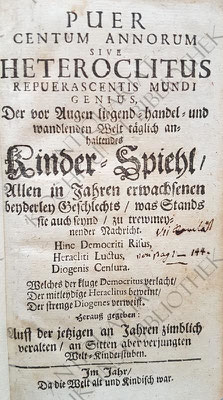 PUER
CENTUM ANNORUM
SIVE
HETEROCLITUS
REPUERASCENTIS MUNDI
GENIUS,
Der vor Augen ligend-handel- und
wandlenden Welt täglich an-
haltendes
Kinder-Spiehl/
Allen in Jahren erwachsenen
beyderley Geschlechts / was Stands
sie auch seynd / zu trewmey-
nender Nachricht.
Hinc Democriti Risus,
Heracliti Luctus,
Diogenis Censura.
Welches der kluge Democritus verlacht/
Der mitleydige Heraclitus beweint/
Der strenge Diogenes verweist.
Herauß gegeben:
Auff der jetzigen an Jahren zimblich
veralten / an Sitten aber verjungten
Welt-Kinderstuben.
Im Jahr/
Da die Welt alt und Kindisch war.